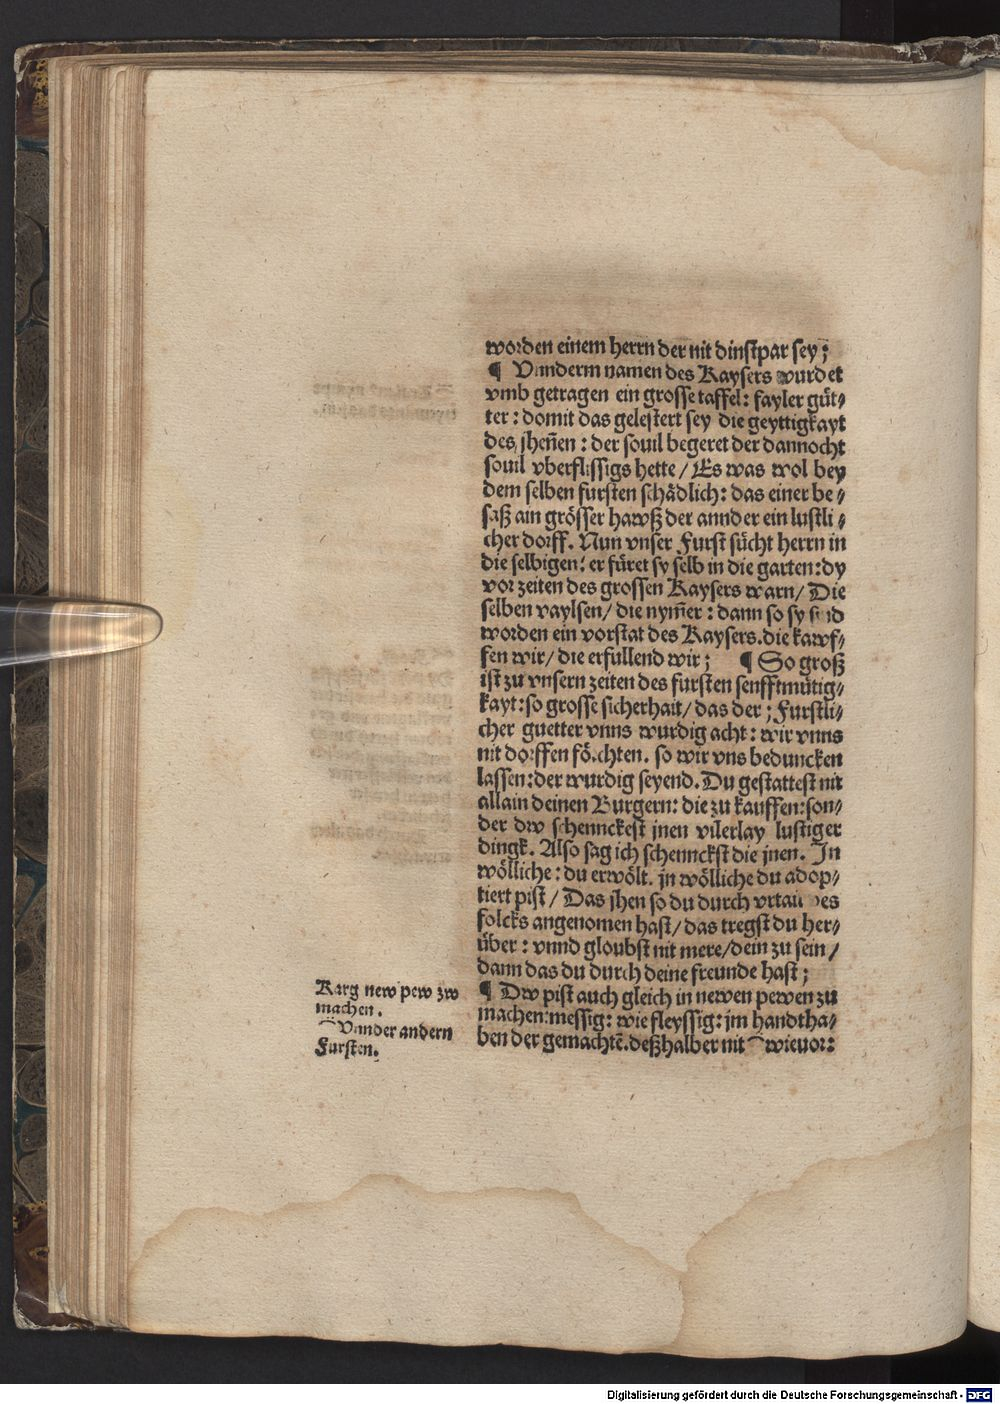 worden einem herrn der nit dinstpar sey;
¶ Vnnderm namen des Kaysers wurdet
vmb getragen ein grosse taffel: fayler güt⸗
ter: domit das gelestert sey die geyttigkayt
des jheñen: der souil begeret der dannocht
souil vberflissigs hette/ Es was wol bey
dem selben fursten schädlich: das einer be⸗
saß ain grösser hawß der annder ein lustli⸗
cher dorff. Nun vnser Furst sücht herrn in
die selbigen: er füret sy selb in die garten: dy
vor zeiten des grossen Kaysers warn/ Die
selben vaylsen/ die nym̃er: dann so sy seid
worden ein vorstat des Kaysers. die kawf⸗
fen wir/ die erfullend wir; ¶ So groß
ist zu vnsern zeiten des fursten senfftmütig⸗
kayt: so grosse sicherhait/ das der; Furstli⸗
cher guetter vnns wurdig acht: wir vnns
nit dorffen förchten. so wir vns beduncken
lassen: der wurdig seyend. Du gestattest nit
allain deinen Burgern: die zu kauffen: son⸗
der dw schennckest jnen vilerlay lustiger
dingk. Also sag ich schennckst die jnen. Jn
wölliche: du erwölt. jn wölliche du adop⸗
tiert pist/ Das jhen so du durch vrtail des
folcks angenomen hast/ das tregst du her⸗
über: vnnd gloubst nit mere/ dein zu sein/
dann das du durch deine freunde hast;
¶ Dw pist auch gleich in newen pewen zu
machen: messig: wie fleyssig: jm handtha⸗
ben der gemachtẽ. deßhalber nit ⁀wieuor:
Karg new pew zw
machen.
⁀Vnnder andern
Fursten.
Digitalisierung gefördert durch die Deutsche Forschungsgemeinschaft - DFG